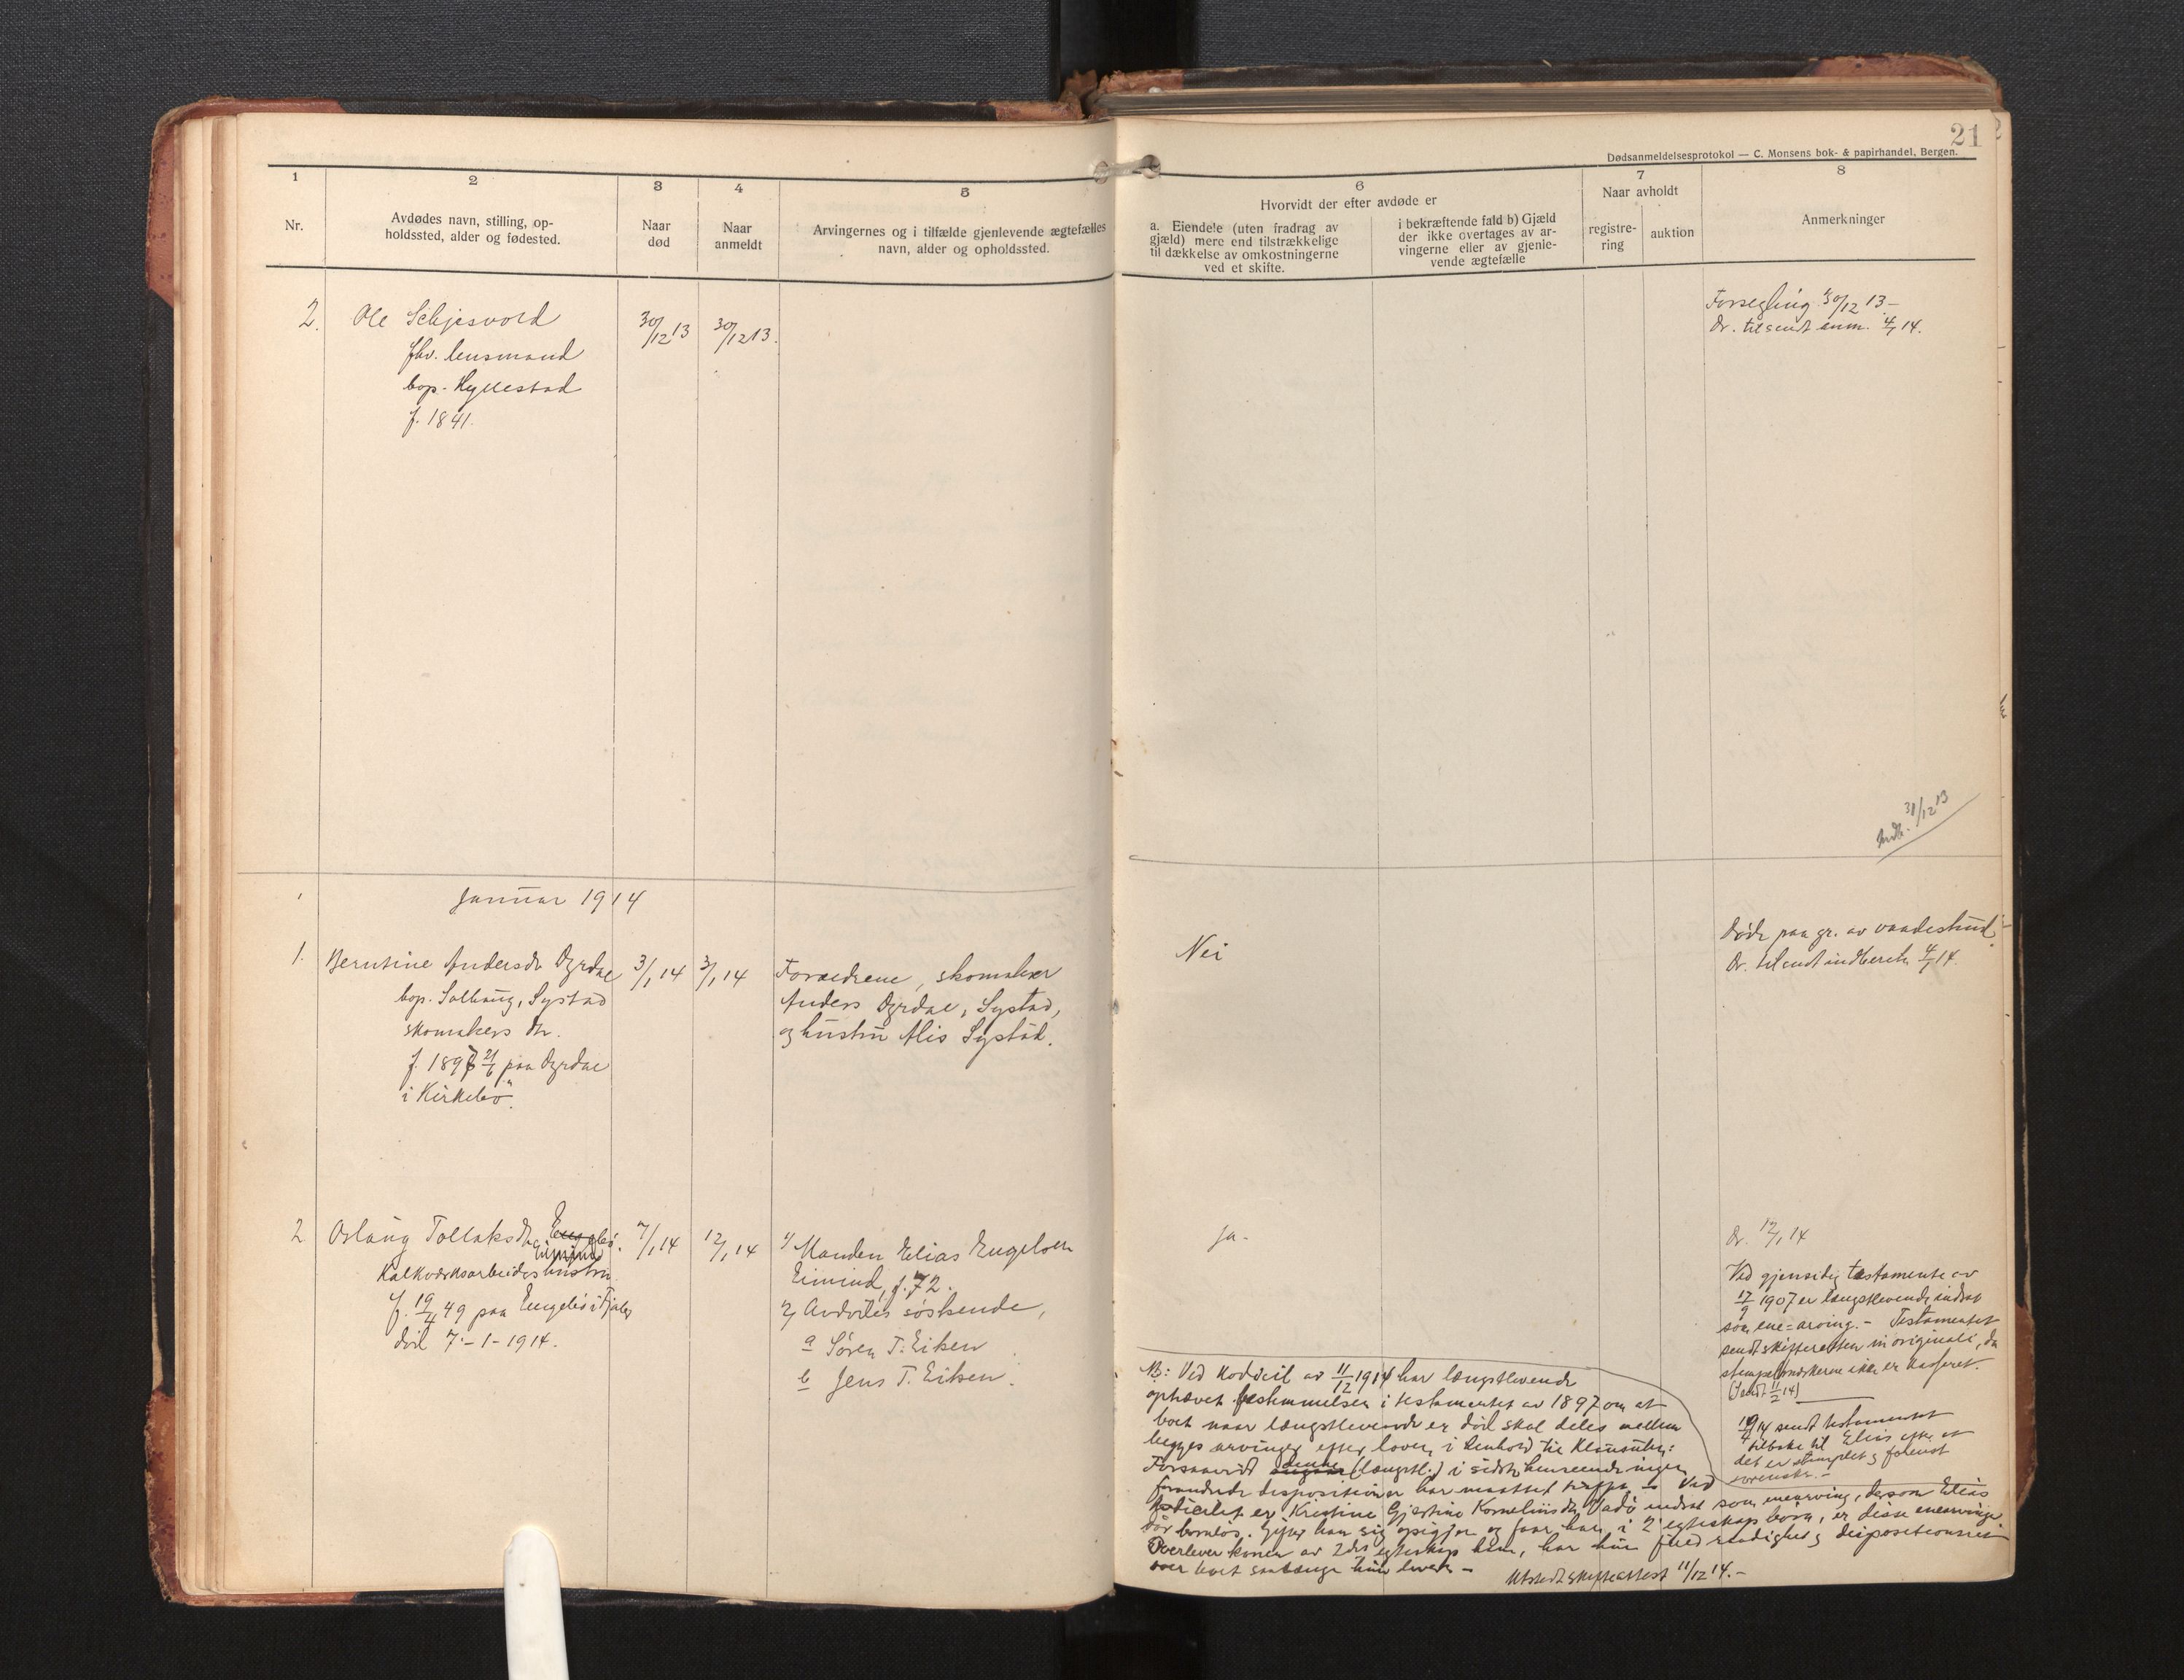 21
Dødsanmeldelsesprotokol — C. Monsens bok- & papirhandel, Bergen.
1
Nr.
2
Avdødes navn, stilling, op-
holdssted, alder og fødested.
3
Naar
død
4
Naar
anmeldt
5
Arvingernes og i tilfælde gjenlevende ægtefælles
navn, alder og opholdssted.
6
Hvorvidt der efter avdøde er
a. Eiendele (uten fradrag av
gjæld) mere end tilstrækkelige
til dækkelse av omkostningerne
ved et skifte.
i bekræftende fald b) Gjæld
der ikke overtages av ar-
vingerne eller av gjenle-
vende ægtefælle
7
Naar avholdt
registre-
ring
auktion
8
Anmerkninger
2.
Ole Schjesvold
fhv. lensmand
bop. Hyllestad
f. 1841.
30/12 13
30/12 13.
Forsegling 30/12 13 –
Dr. tilsendt anm. 4/1 14.
Indb. 31/12 13
Januar 1914
1.
Berntine Andersdr Dyrdal
bop. Solhaug, Systad
skomakers dtr.
f. 1897 21/6 paa Dyrdal
i Kirkebø.
3/1 14
3/1 14
Forældrene, skomaker
Anders Dyrdal, Systad,
og hustru Alis Systad.
Nei
Døde paa gr. av vaadeskud.
Dr. tilsendt indberetn. 4/1 14.
2
Oslaug Tollaksdtr Engebø.
Eimind
Kalkværksarbeiders hustru.
f. 19/4 49 paa Engebø i Fjaler
død 7-1-1914.
7/1 14
12/1 14
1/ Manden Elias Engelsen
Eimind, f. 72.
2/ Avdødes søskende,
a Søren T. Eiken
b Jens T. Eiken.
Ja.
Dr. 12/1 14
Ved gjensidig testamente av
17/9 1907 er længstlevende indsat
som ene-arving. – Testamentet
sendt skifteretten in originali, da
stempelmerkerne ikke er kasseret.
(Sendt 11/2 14)
19/4 14 sendt testamentet
tilbake til Elias efter at
det er stemplet og forevist
sorenskr. –
NB: Ved kodicil av 11/12 1914 har længstlevende
ophævet bestemmelsen i testamentet av 1897 om at
boet naar længstlevende er død skal deles mellem
begges arvinger efter loven, i henhold til klausulen:
Forsaavidt denne (længstl.) i sidste henseende ingen
forandrede dispositioner har maattet træffe. – Ved
kodicilet er Kristine Gjertine Korneliusdtr Vadø indsat som enearving, dersom Elias
dør barnløs. Gifter han sig opigjen og faar han i 2. egteskap børn, er disse enearvinger.
Overlever konen av 2det egteskap ham, har hun fuld raadighet og dispositionsret
over boet saalænge hun lever. –
Utstedt skifteattest 11/12 14. –